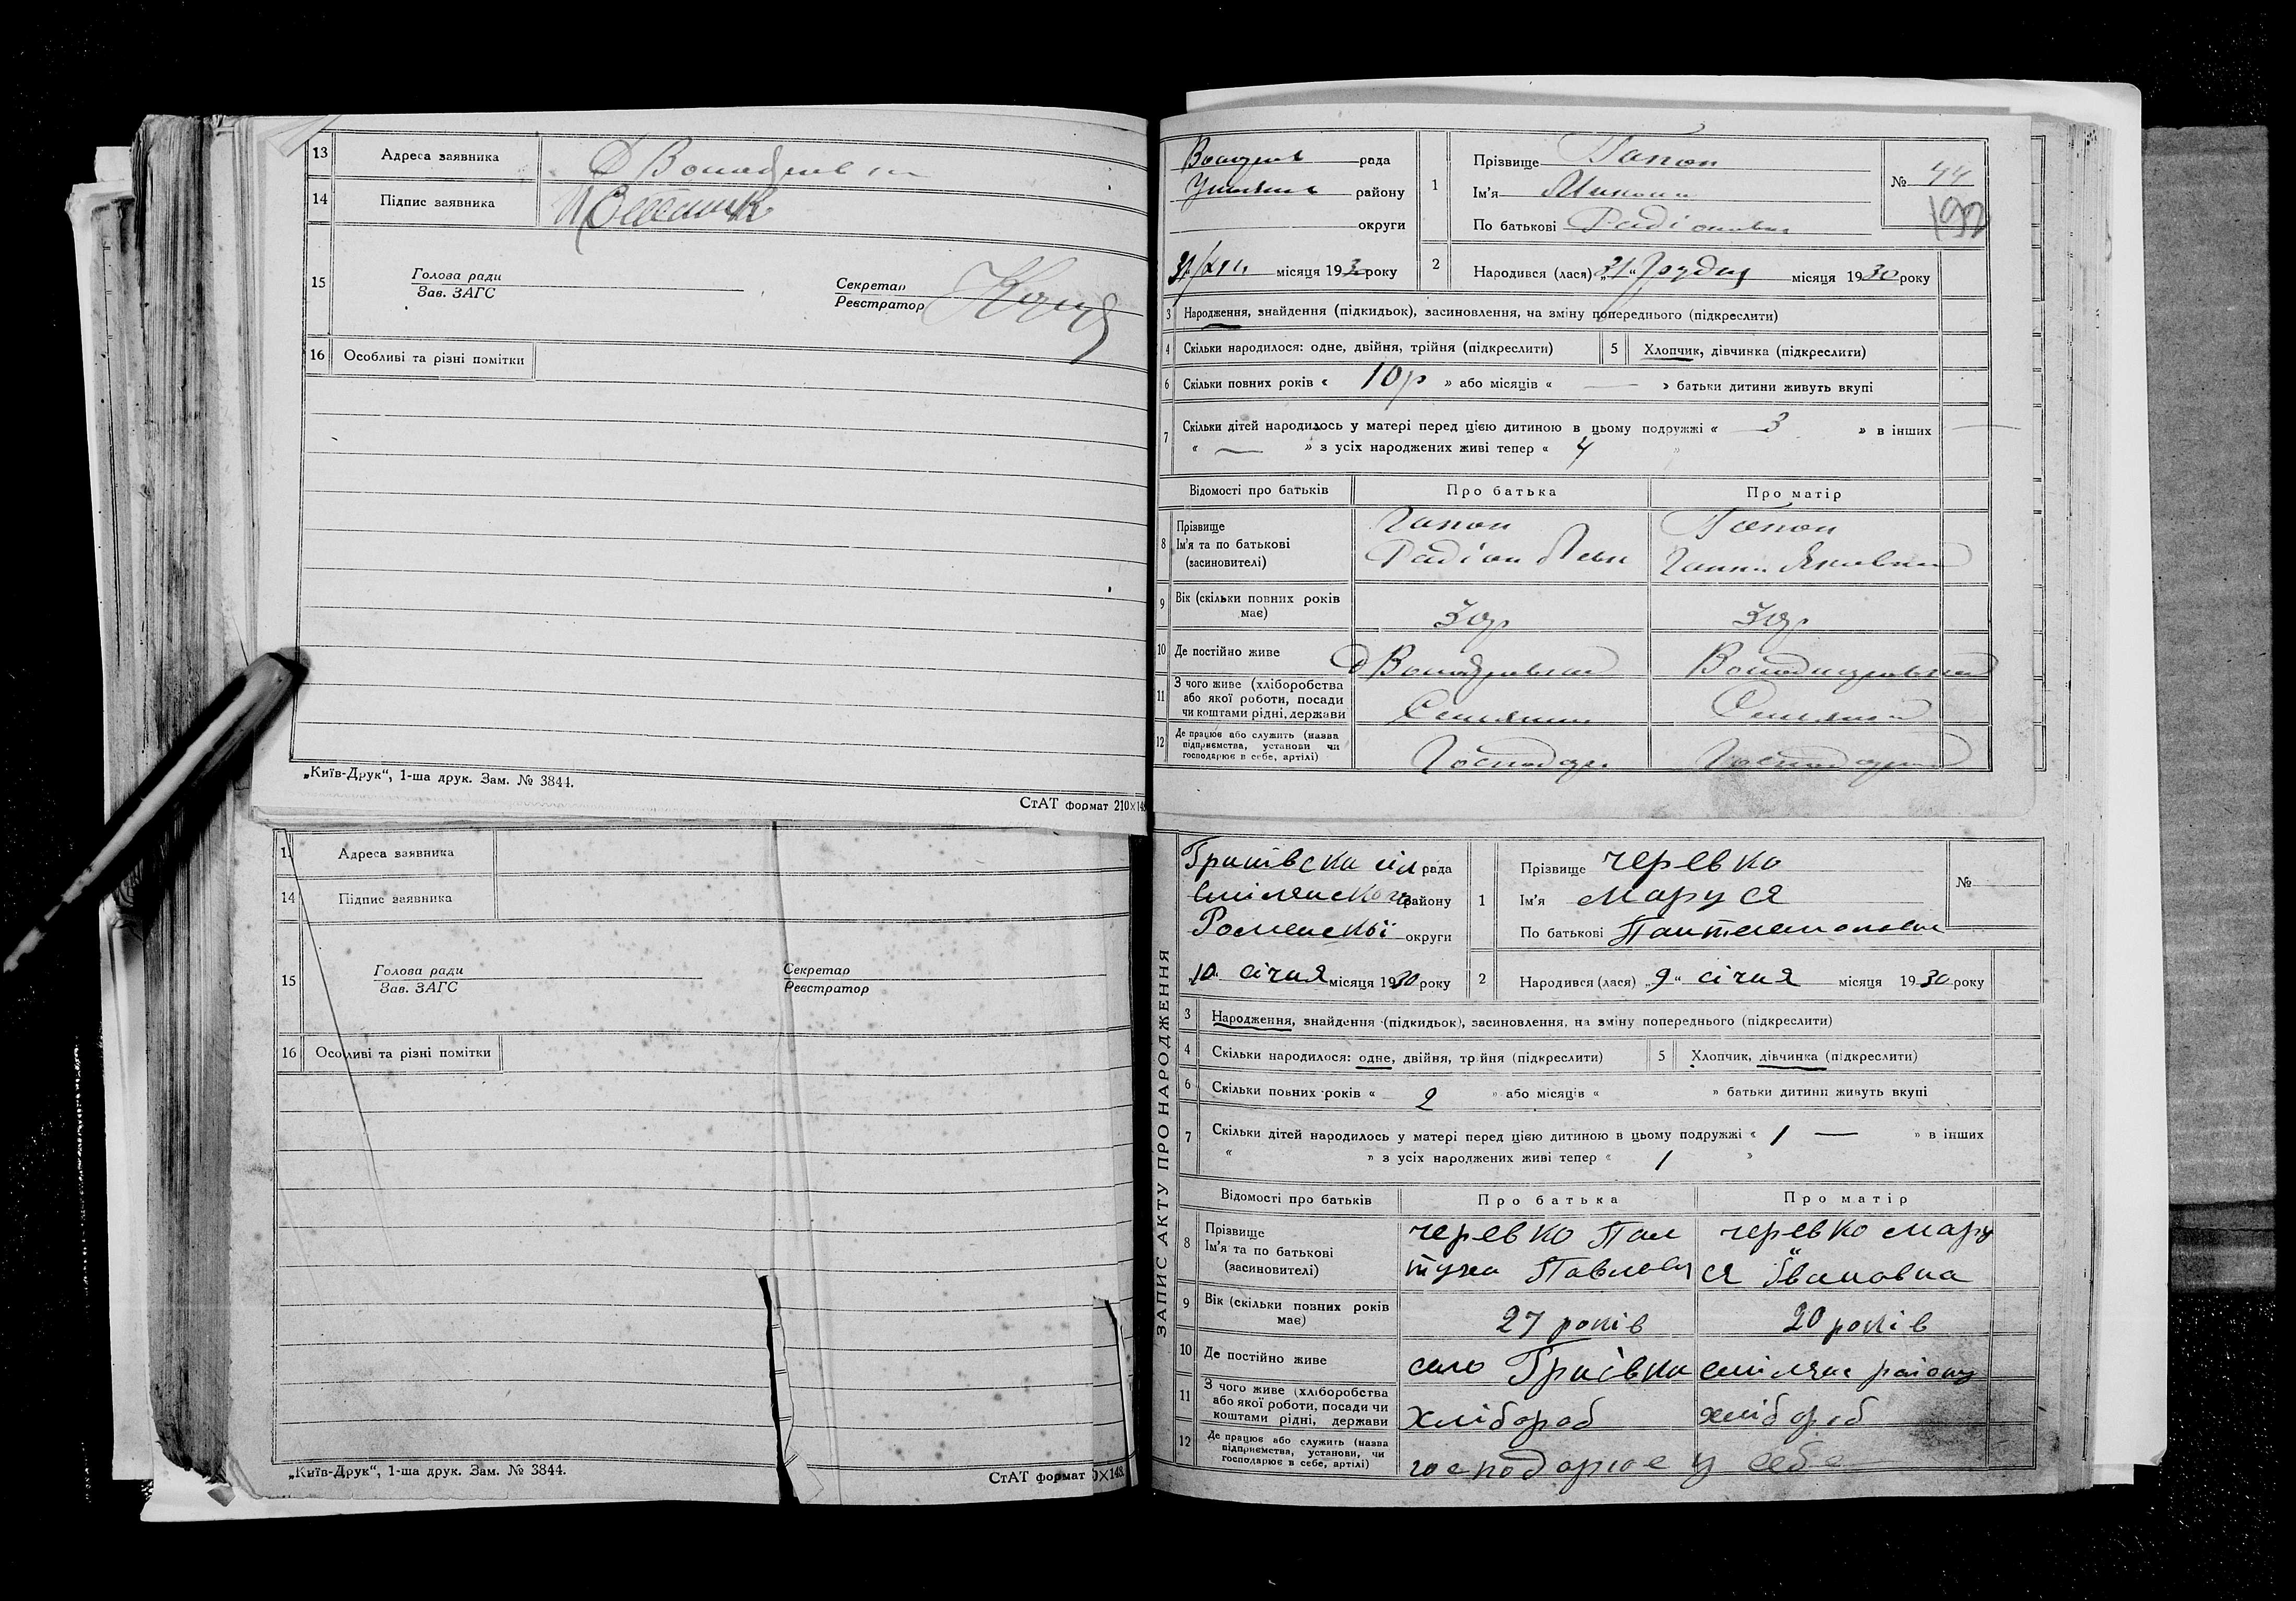 13 Адреса заявника
14 Підпис заявника
15 Голова ради
Зав. ЗАГС
Секретар
Реєстратор
16 Особливі та різні помітки
„Київ-Друк“, 1-ша друк. Зам. № 3844.
СтАТ формат 210×148
Адреса заявника
14 Підпис заявника
15 Голова ради
Зав. ЗАГС
Секретар
Реєстратор
16 Особливі та різні помітки
„Київ-Друк“, 1-ша друк. Зам. № 3844.
СтАТ формат
рада
району
округи
місяця 193 року
1 Прізвище Гапон
Ім'я Микола
По батькові Радіонович
№ 44
192
2 Народився (лася) „31“ Грудня місяця 1930 року
3 Народження, знайдення (підкидьок), засиновлення, на зміну попереднього (підкреслити)
4 Скільки народилося: одне, двійня, трійня (підкреслити)
5 Хлопчик, дівчинка (підкреслити)
6 Скільки повних років « 10р » або місяців « — » батьки дитини живуть вкупі
7 Скільки дітей народилось у матері перед цією дитиною в цьому подружжі « 3 » в інших
« — » з усіх народжених живі тепер « 4 »
Відомості про батьків Про батька Про матір
8 Прізвище
Ім'я та по батькові
(засиновителі)
Гапон
Радіон
Гапон
Ганна Яковна
9 Вік (скільки повних років
має)
30р 30р
10 Де постійно живе
11 З чого живе (хліборобства
або якої роботи, посади
чи коштами рідні, держави
Селянин
12 Де працює або служить (назва
підприємства, установи чи
господарює в себе, артілі)
Господар
ЗАПИС АКТУ ПРО НАРОДЖЕННЯ
рада
Смілянского району
Роменскої округи
10 січня місяця 1930 року
1 Прізвище Черевко
Ім'я Маруся
По батькові Пантелемоновна
№
2 Народився (лася) „9“ січня місяця 1930 року
3 Народження, знайдення (підкидьок), засиновлення, на зміну попереднього (підкреслити)
4 Скільки народилося: одне, двійня, трійня (підкреслити)
5 Хлопчик, дівчинка (підкреслити)
6 Скільки повних років « 2 » або місяців « » батьки дитини живуть вкупі
7 Скільки дітей народилось у матері перед цією дитиною в цьому подружжі « 1 — » в інших
« » з усіх народжених живі тепер « 1 »
Відомості про батьків Про батька Про матір
8 Прізвище
Ім'я та по батькові
(засиновителі)
Черевко
Павлович
Черевко Мару
ся Івановна
9 Вік (скільки повних років
має)
27 років 20 років
10 Де постійно живе
село Гриівка смілянс району
11 З чого живе (хліборобства
або якої роботи, посади чи
коштами рідні, держави
хлібороб хлібороб
12 Де працює або служить (назва
підприємства, установи, чи
господарює в себе, артілі)
господарює у себе